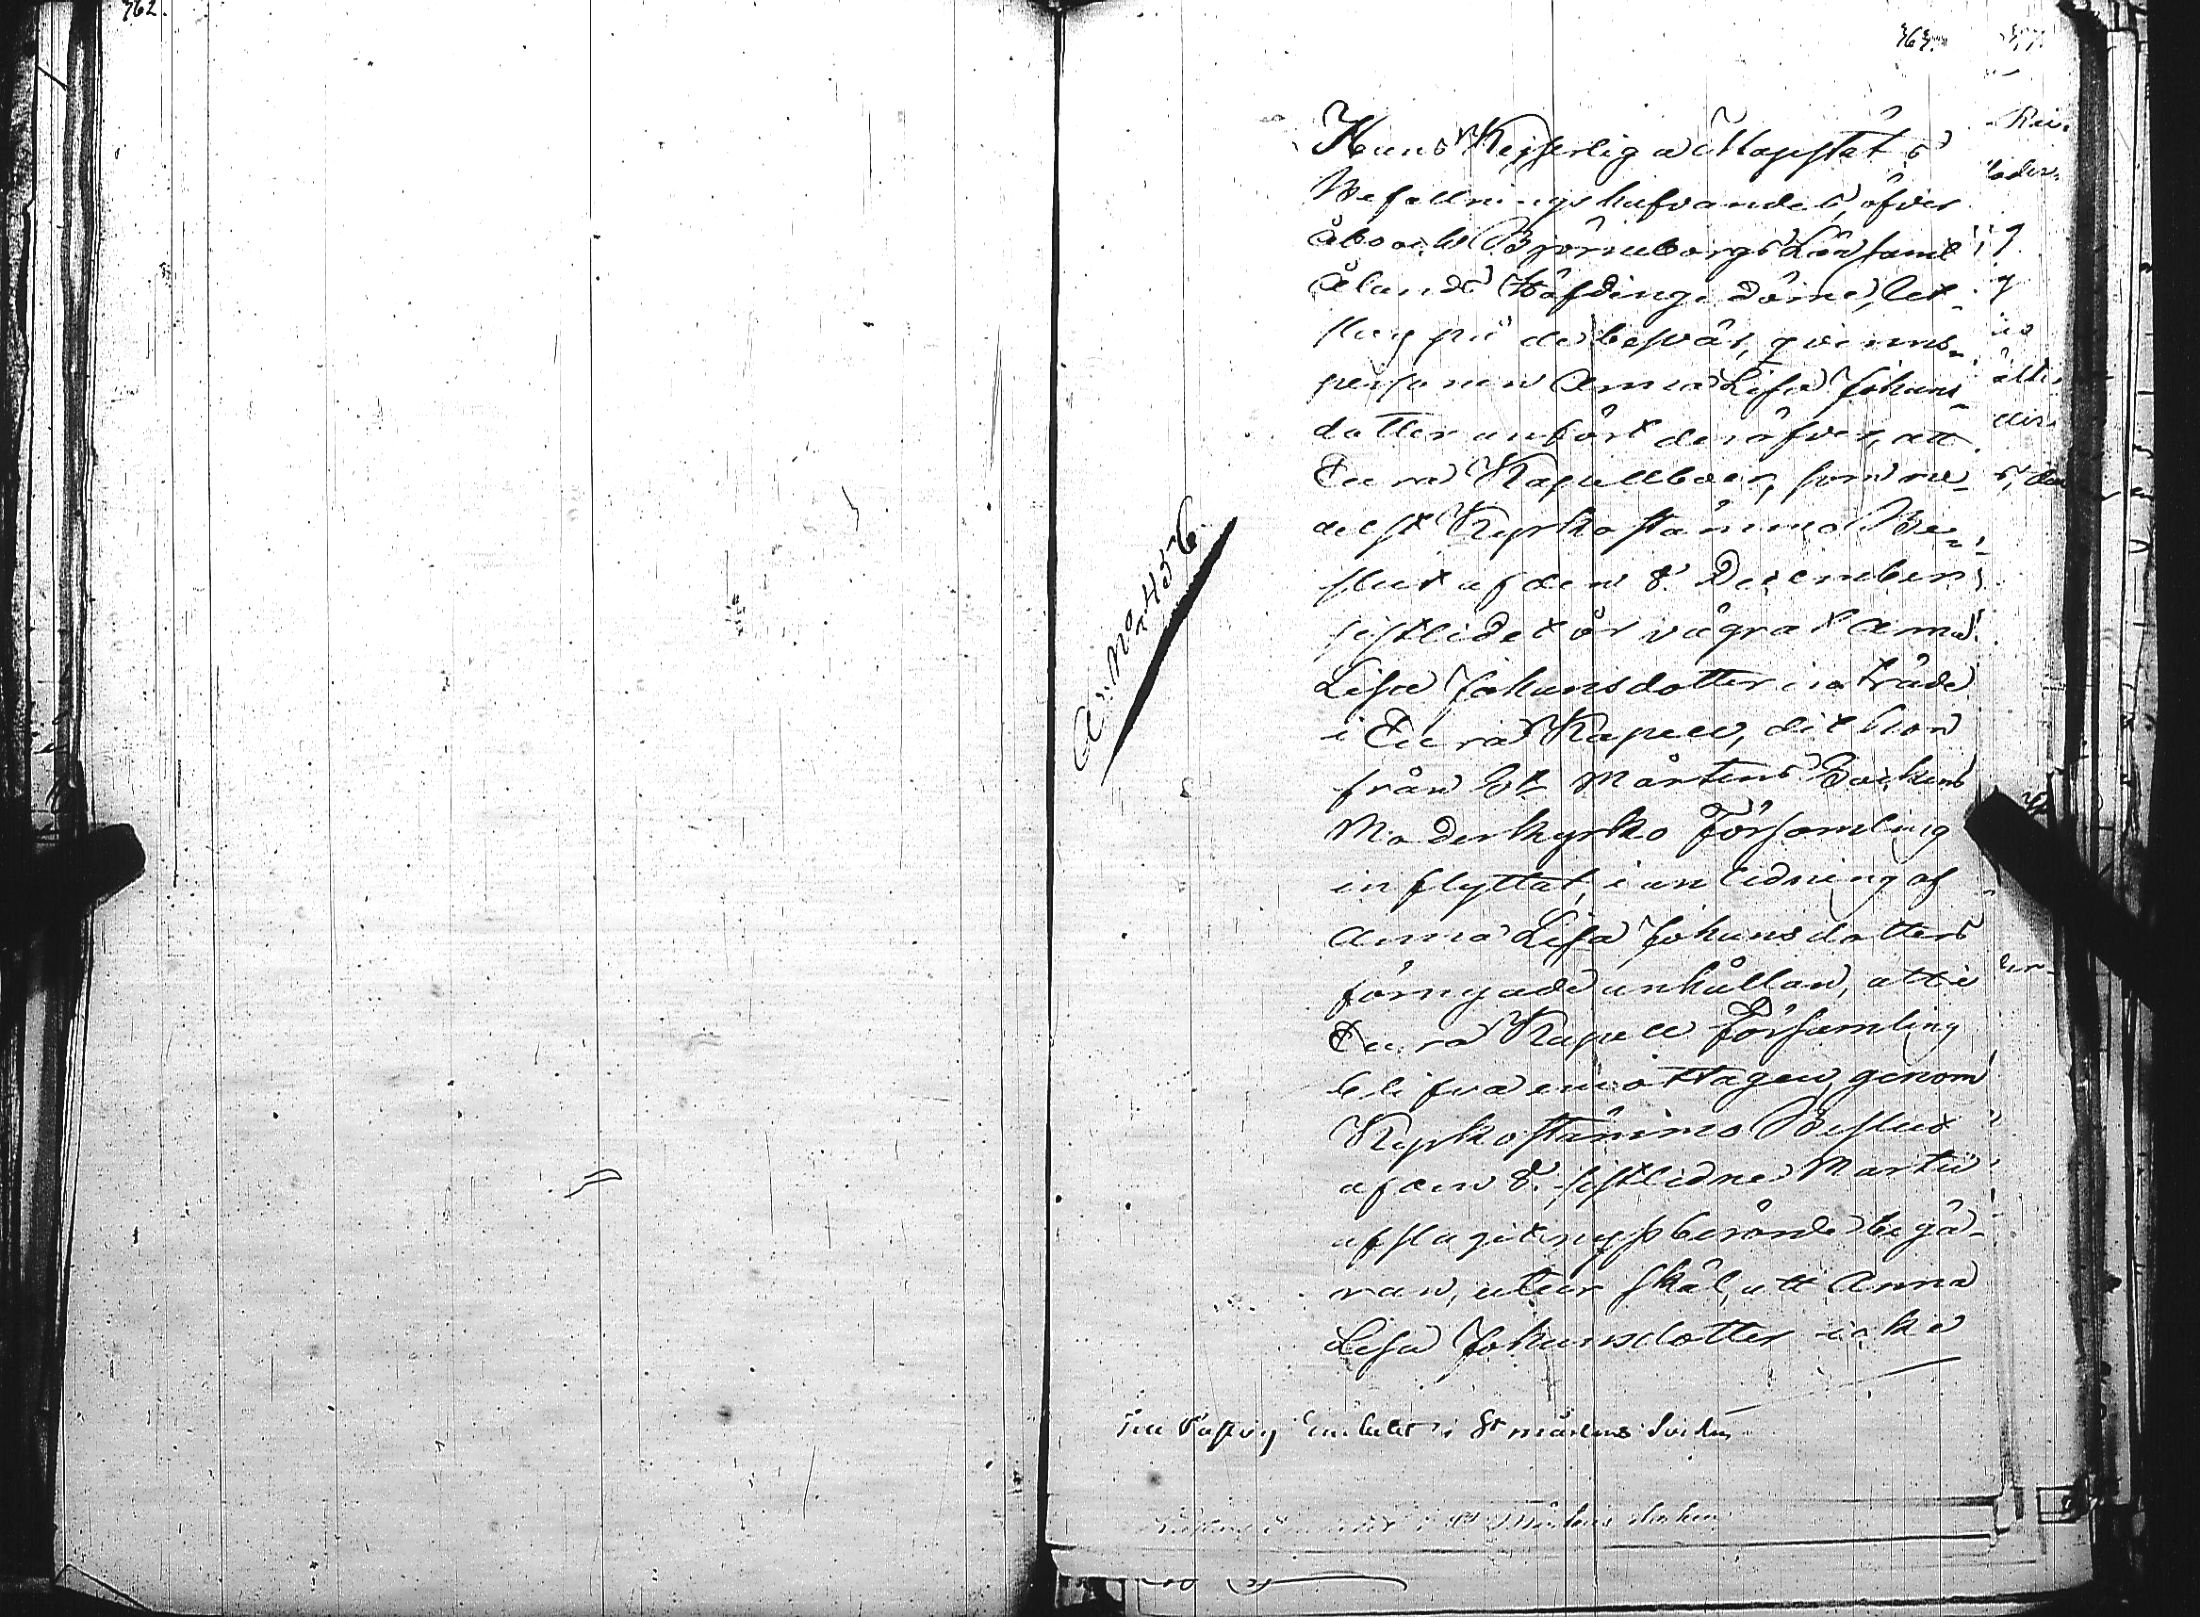 762.
763.
Hans Kejserliga Majestäts
Befallningshafvandes öfver
Åbo och Björneborgs Län samt
Ålands Höfdingedöme, Ut-
slag på de besvär, qvinns-
personen Anna Lisa Johans-
dotter anfört deröfver, att
Eura Kapellboer, som me-
delst Kyrkostämmo Be-
slut af den 8 December
sistlidet år vägrat Anna
Lisa Johansdotter inträde
i Eura Kapell, dit hon
från St Mårtens Socken
Moderkyrko Församling
inflyttat, i anledning af
Anna Lisa Johansdotters
förnyade anhållan, att i
Eura Kapell Församling
blifva emottagen, genom
Kyrkostämmo Beslut
af den 8. sistlidne Martii
afslagit nyssberörde begä-
ran, utur skäl, att Anna
Lisa Johansdotter icke
An. No 456.
Till Pastors Embetet i St Mårtens Socken